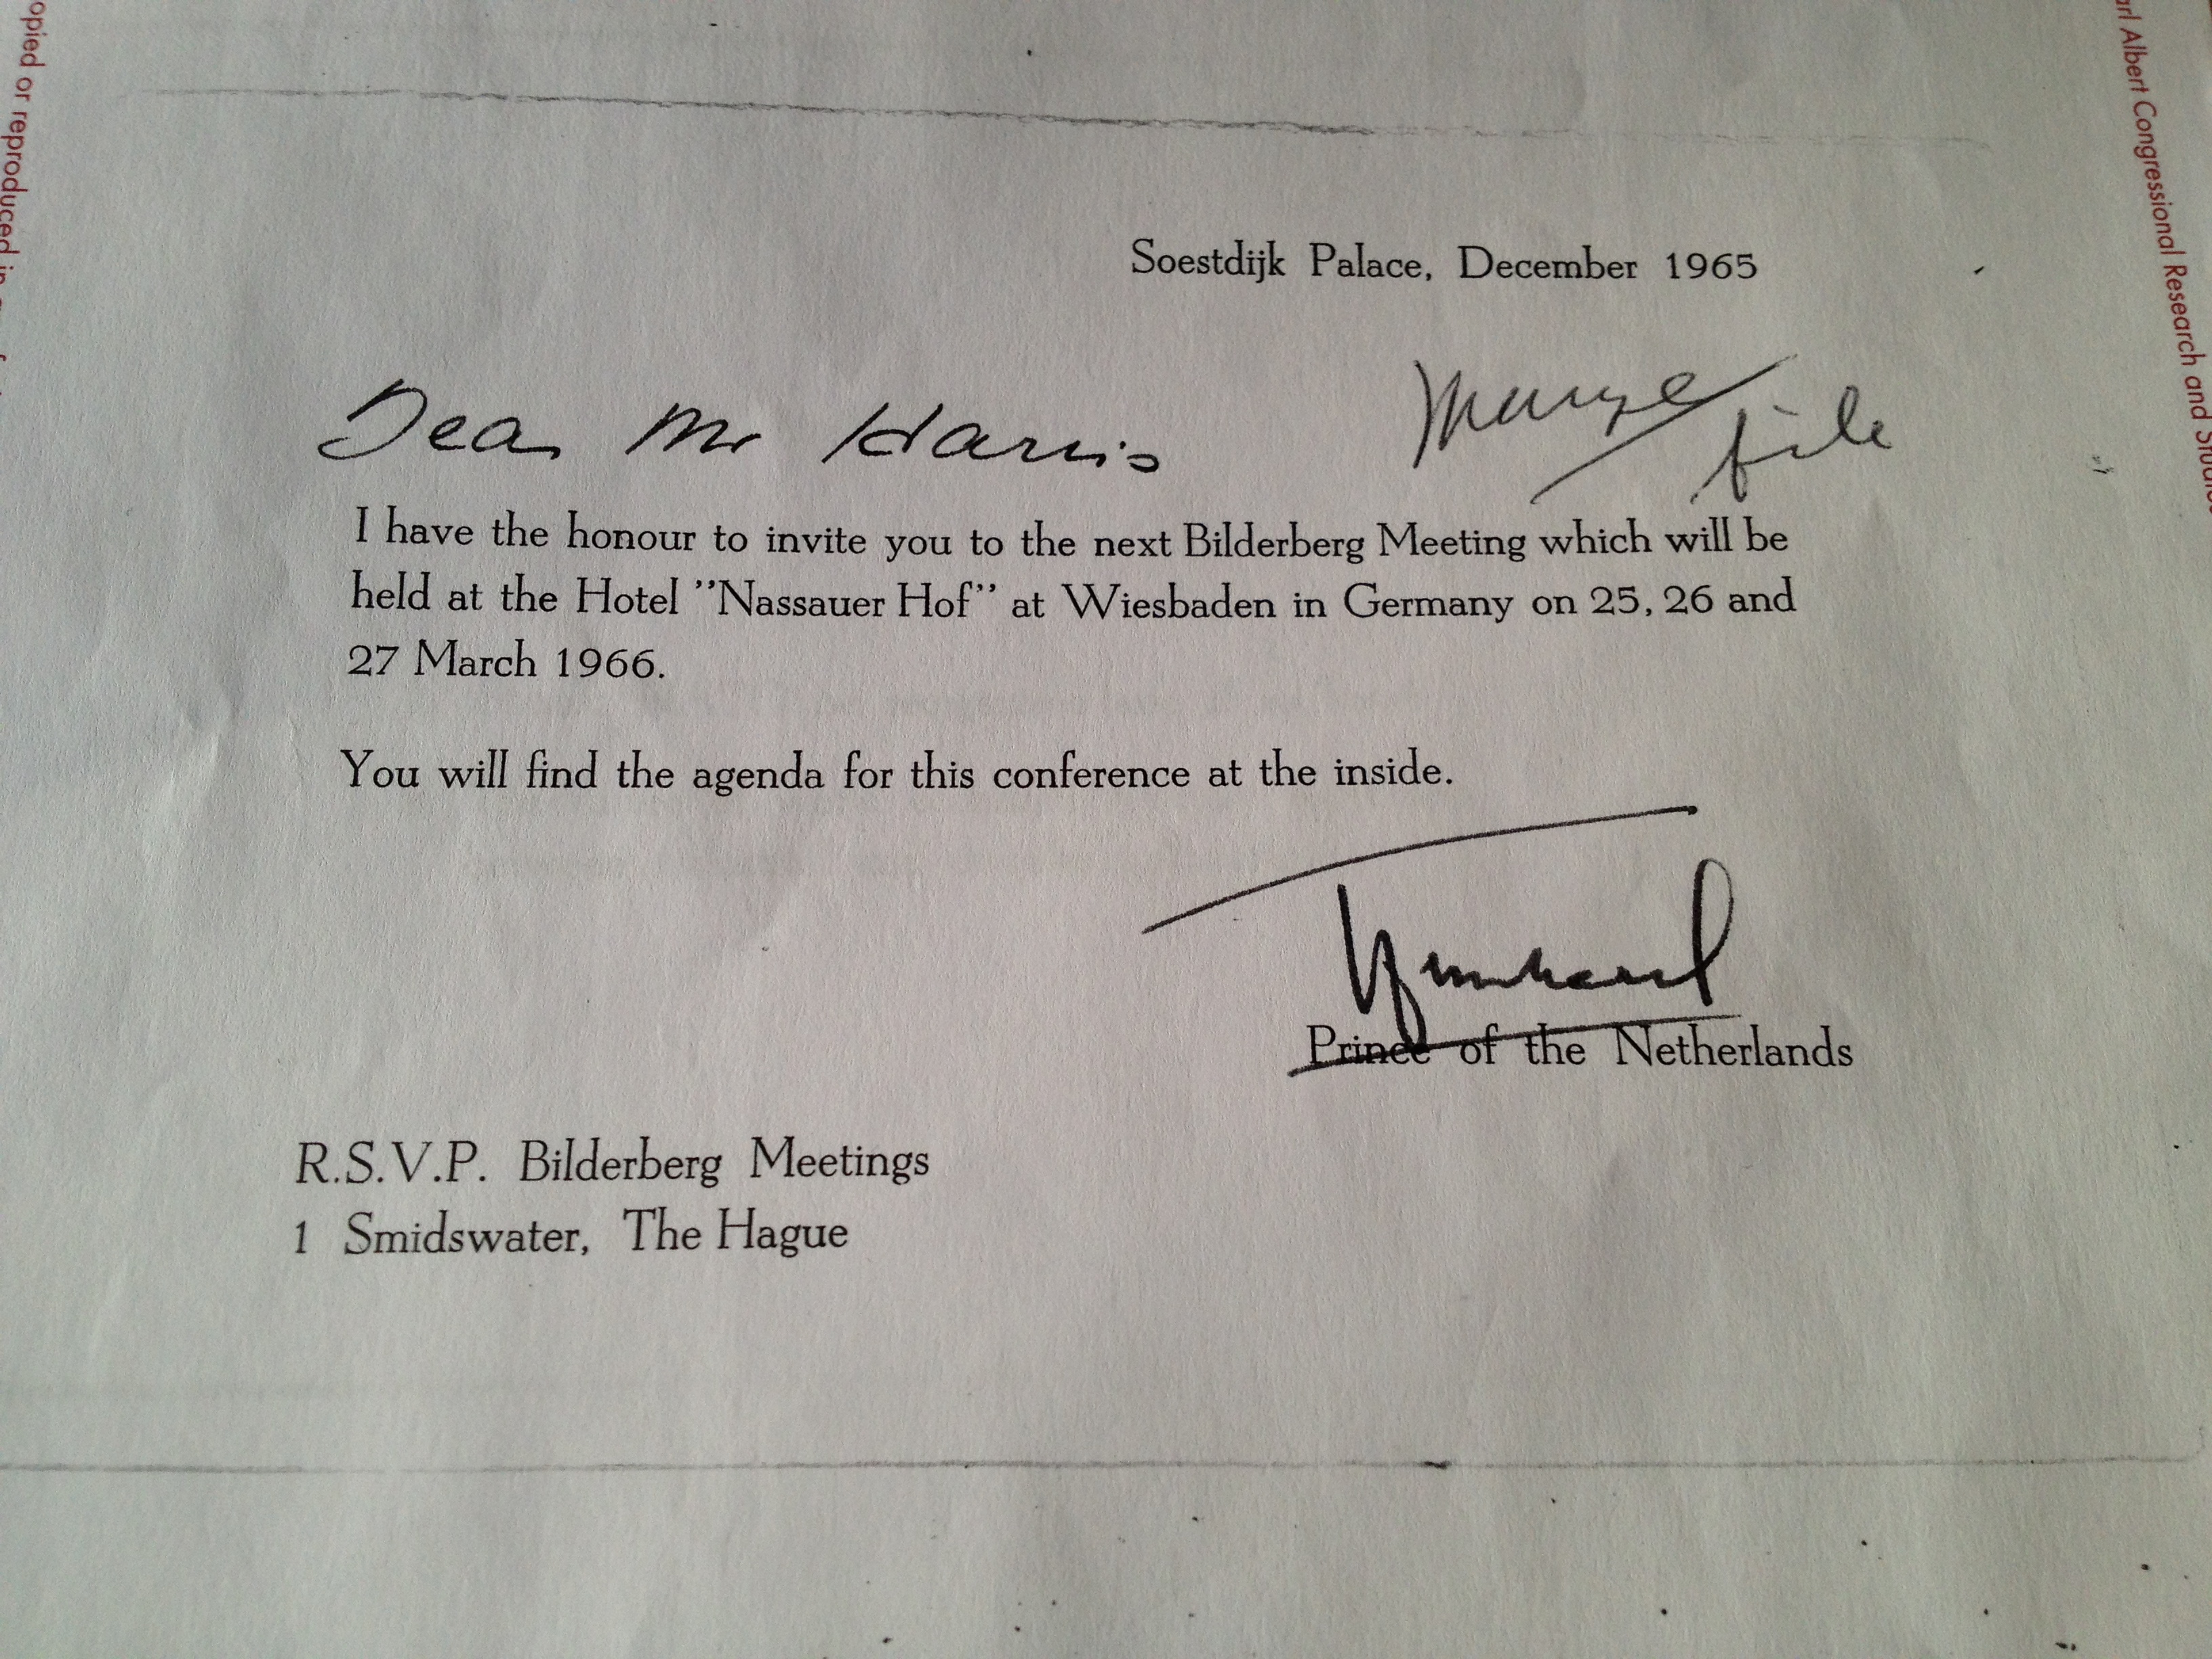 opied or reproduced in
Soestdijk Palace, December 1965
Dear Mr Harris
file
I have the honour to invite you to the next Bilderberg Meeting which will be
held at the Hotel "Nassauer Hof" at Wiesbaden in Germany on 25, 26 and
27 March 1966.
You will find the agenda for this conference at the inside.
Prince of the Netherlands
R.S.V.P. Bilderberg Meetings
1 Smidswater, The Hague
arl Albert Congressional Research and Studies